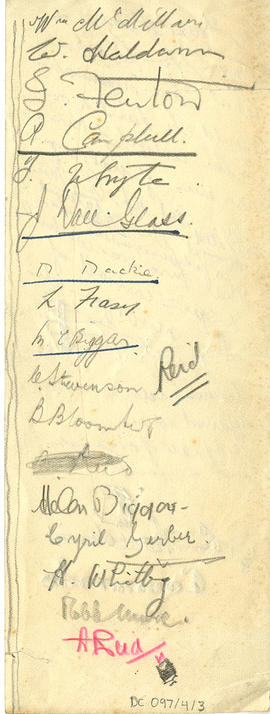 Wm McMillan
W. Haldann
S. Fenton
A Campbell.
J. Whyte.
J Dall Glass.
M Mackie
L Frasy
M. C Biggar
C. Stevenson
Reid
B Bloom
Reid
Helen Biggar
Cyril Gerber.
H. Whitby
A Reid
DC 097/4/3